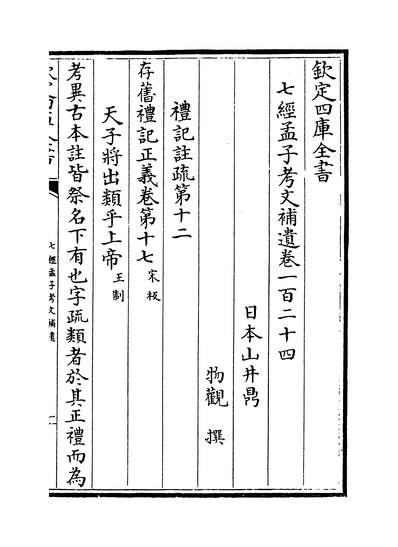 欽定四庫全書
七經孟子考文補遺卷一百二十四
日本山井鼎
物觀 撰
禮記註疏第十二
存舊禮記正義卷第十七宋板
天子將出類乎上帝王制
考異古本註皆祭名下有也字疏類者於其正禮而為
七經孟子考文補遺